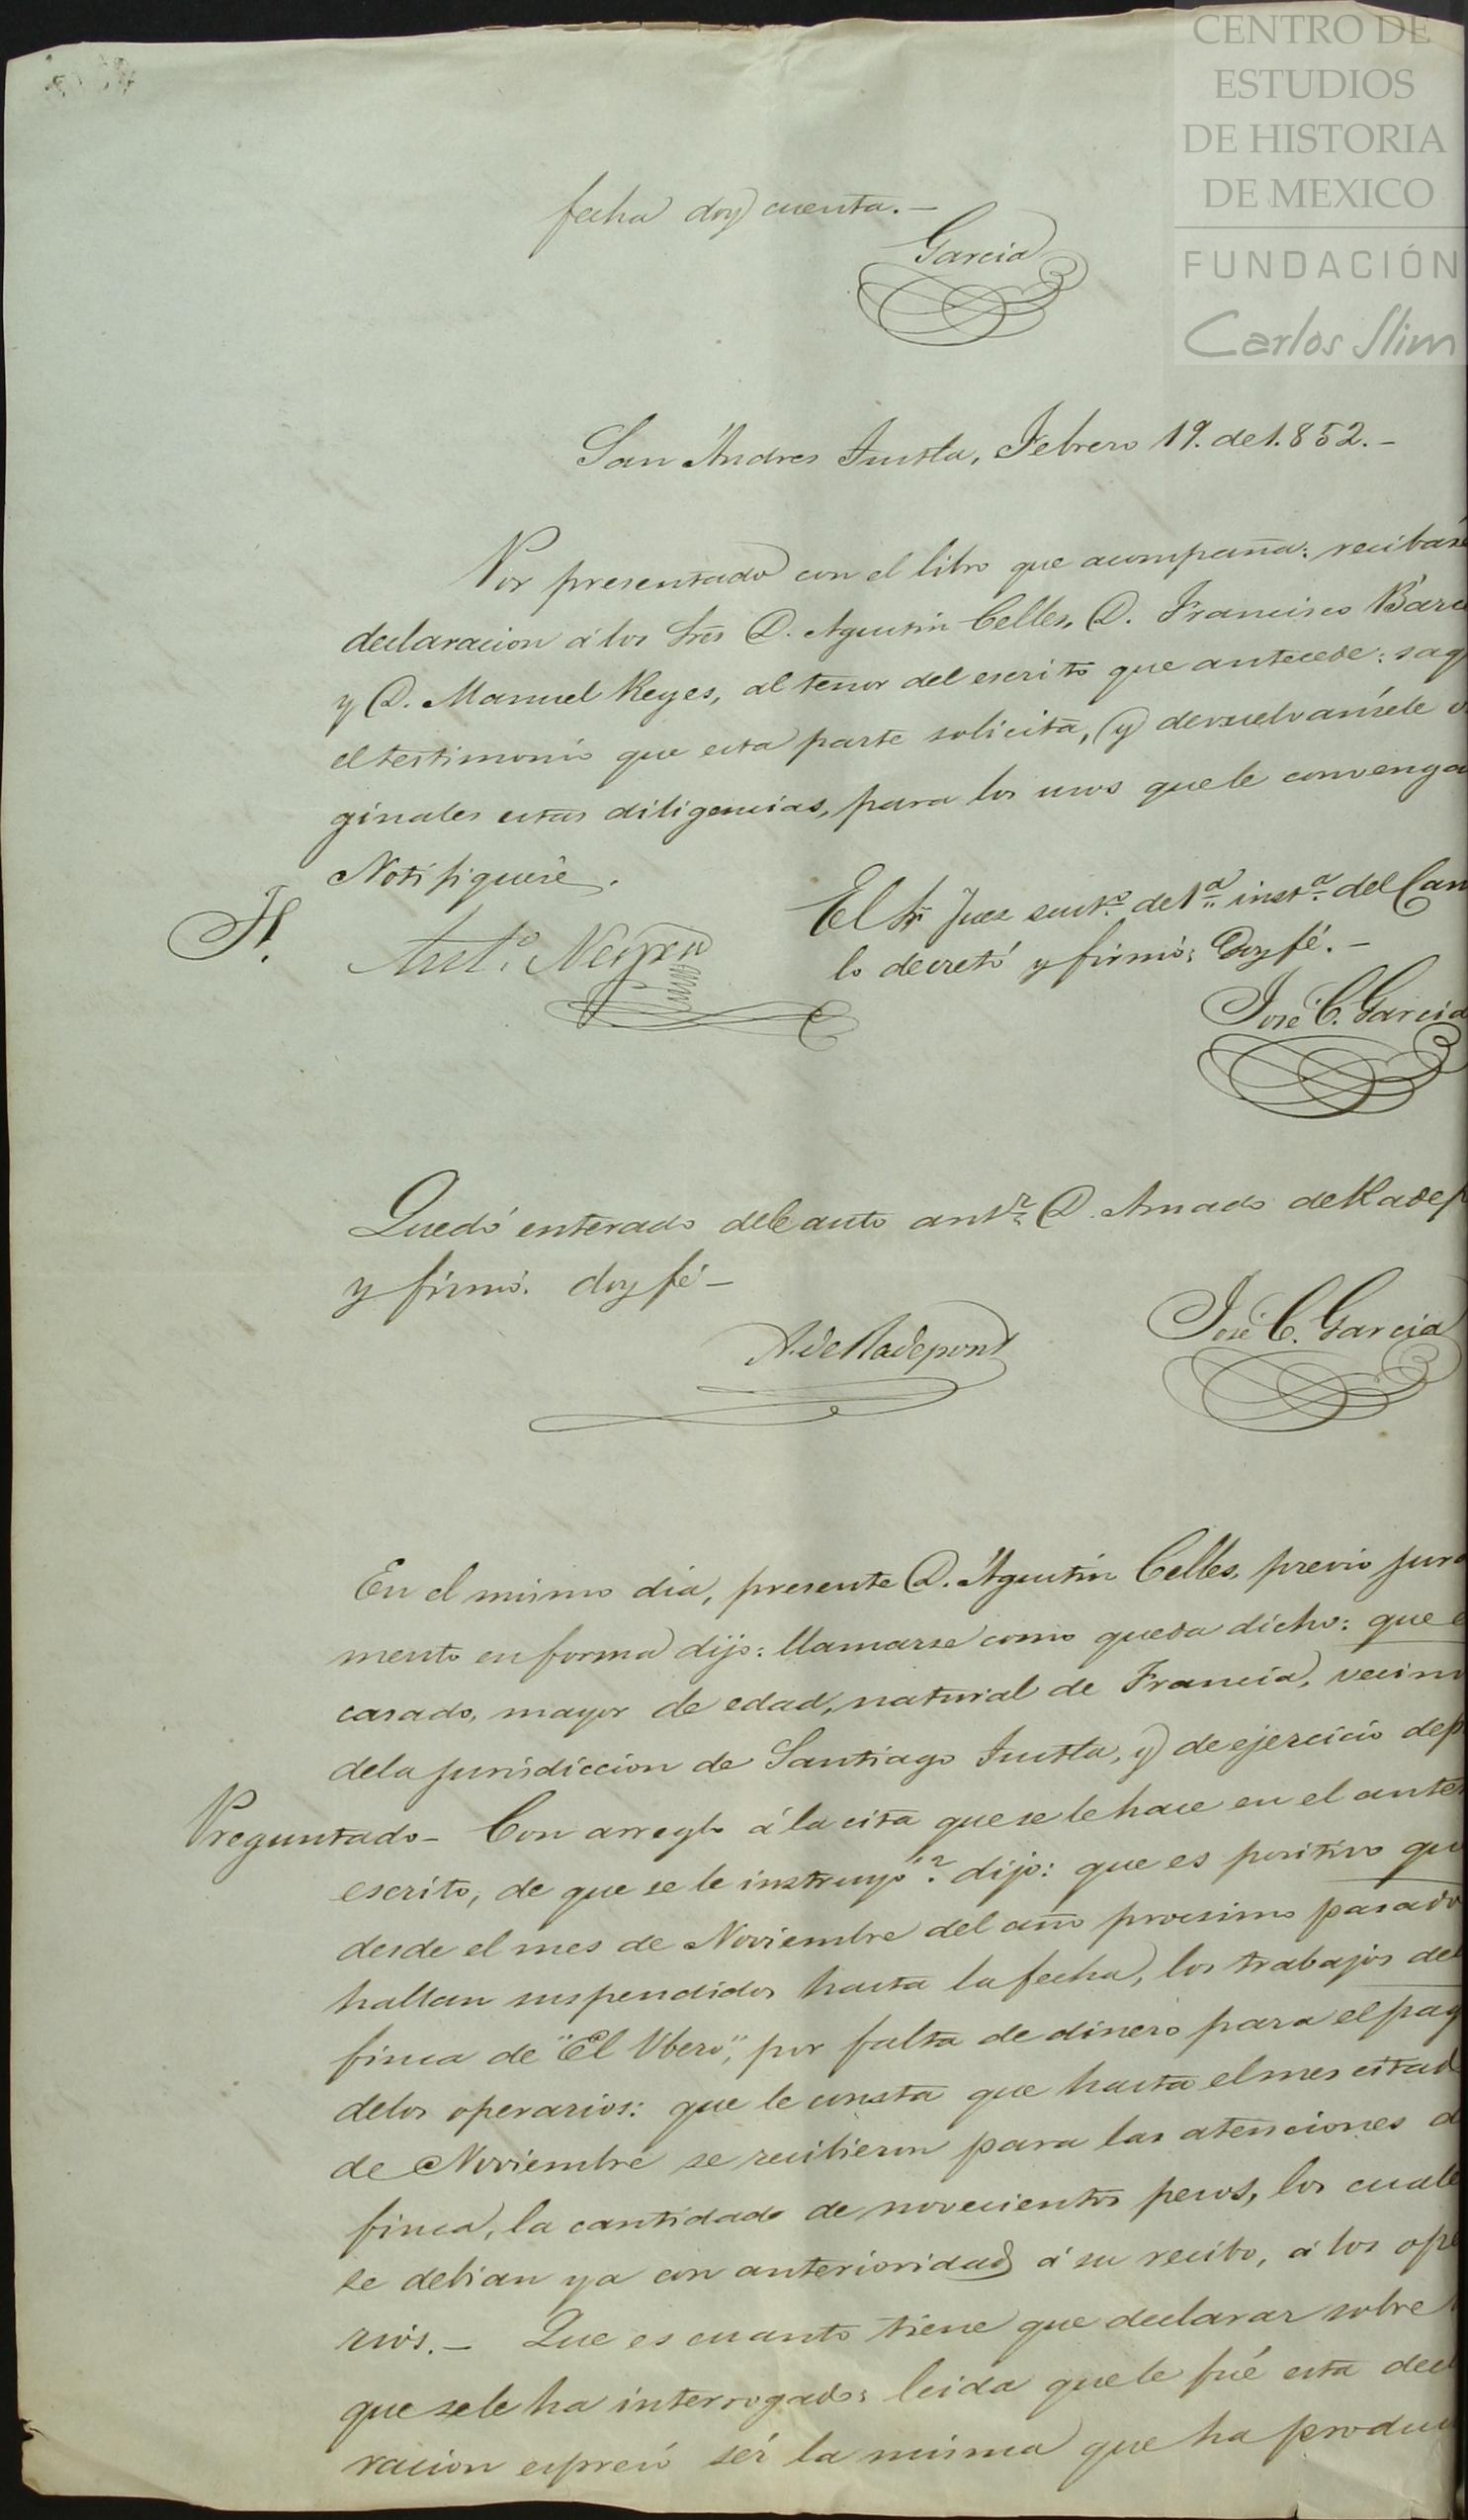 CENTRO DE
ESTUDIOS
DE HISTORIA
DE MEXICO
FUNDACIÓN
Carlos Slim
fecha doy cuenta.—
Garcia
San Andres Tuxtla, Febrero 19. de 1.852.—
Por presentado con el libro que acompaña: recibase
declaracion á los Sres D. Agustin Celles, D. Francisco Bárc
y D. Manuel Reyes, al tenor del escrito que antecede: saq
el testimonio que esta parte solicita, y devuelvansele o
ginales estas diligencias, para los usos que le convenga
Notifiquese.
El Sr Juez sustº de 1ª instª del Can
lo decretó y firmó: Doy fé.—
Antº Neyra
José C. Garcia
Quedó enterado del auto antr D. Amado de Radep
y firmó. doy fé—
A. de Radepont
José C. Garcia
En el mismo dia, presente D. Agustin Celles, previo jura
mento en forma dijo: llamarse como queda dicho: que e
casado, mayor de edad, natural de Francia, vecino
dela jurisdiccion de Santiago Tuxtla, y de ejercicio dep
Preguntado— Con arreglo á la cita que se le hace en el ante
escrito, de que se le instruyó? dijo: que es positivo qu
desde el mes de Noviembre del año procsimo pasado
hallan suspendidos hasta la fecha, los trabajos de
finca de "El Ubero", por falta de dinero para el pag
delos operarios: que le consta que hasta el mes citad
de Noviembre se recibieron para las atenciones d
finca, la cantidad de novecientos pesos, los cuale
se debian ya con anterioridad á su recibo, á los ope
rios.— Que es cuanto tiene que declarar sobre
que sele ha interrogado: leida que le fué esta decl
racion espresó sér la misma que ha produci